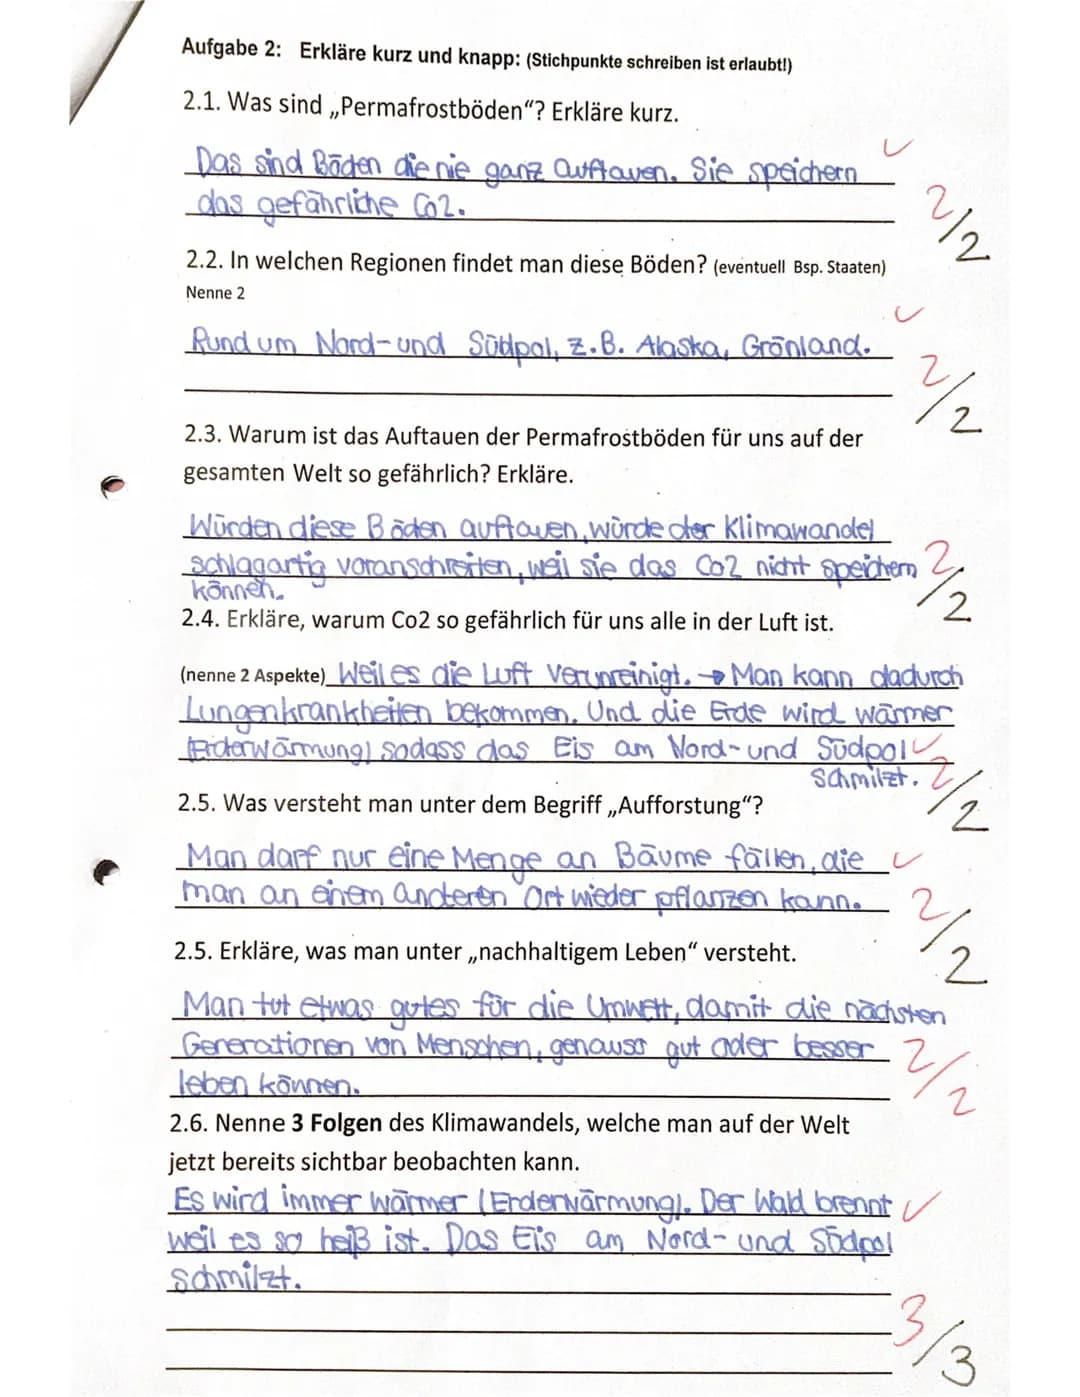 Aufgabe 2: Erkläre kurz und knapp: (Stichpunkte schreiben ist erlaubt!)
2.1. Was sind „Permafrostböden“? Erkläre kurz.
Das sind Böden die nie ganz auftauen. Sie speichern
das gefährliche Co2.
2/2
2.2. In welchen Regionen findet man diese Böden? (eventuell Bsp. Staaten)
Nenne 2
Rund um Nord- und Südpol, z.B. Alaska, Grönland.
2/2
2.3. Warum ist das Auftauen der Permafrostböden für uns auf der
gesamten Welt so gefährlich? Erkläre.
Würden diese Böden auftauen, würde der Klimawandel
schlagartig voranschreiten, weil sie das Co2 nicht speichern
können.
2/2
2.4. Erkläre, warum Co2 so gefährlich für uns alle in der Luft ist.
(nenne 2 Aspekte) Weil es die Luft verunreinigt. → Man kann dadurch
Lungenkrankheiten bekommen. Und die Erde wird wärmer
(Erderwärmung) sodass das Eis am Nord- und Südpol
schmilzt.
2/2
2.5. Was versteht man unter dem Begriff „Aufforstung“?
Man darf nur eine Menge an Bäume fällen, die
man an einem anderen Ort wieder pflanzen kann.
2/2
2.5. Erkläre, was man unter „nachhaltigem Leben“ versteht.
Man tut etwas gutes für die Umwelt, damit die nächsten
Generationen von Menschen, genauso gut oder besser
leben können.
2/2
2.6. Nenne 3 Folgen des Klimawandels, welche man auf der Welt
jetzt bereits sichtbar beobachten kann.
Es wird immer wärmer (Erderwärmung). Der Wald brennt
weil es so heiß ist. Das Eis am Nord- und Südpol
schmilzt.
3/3